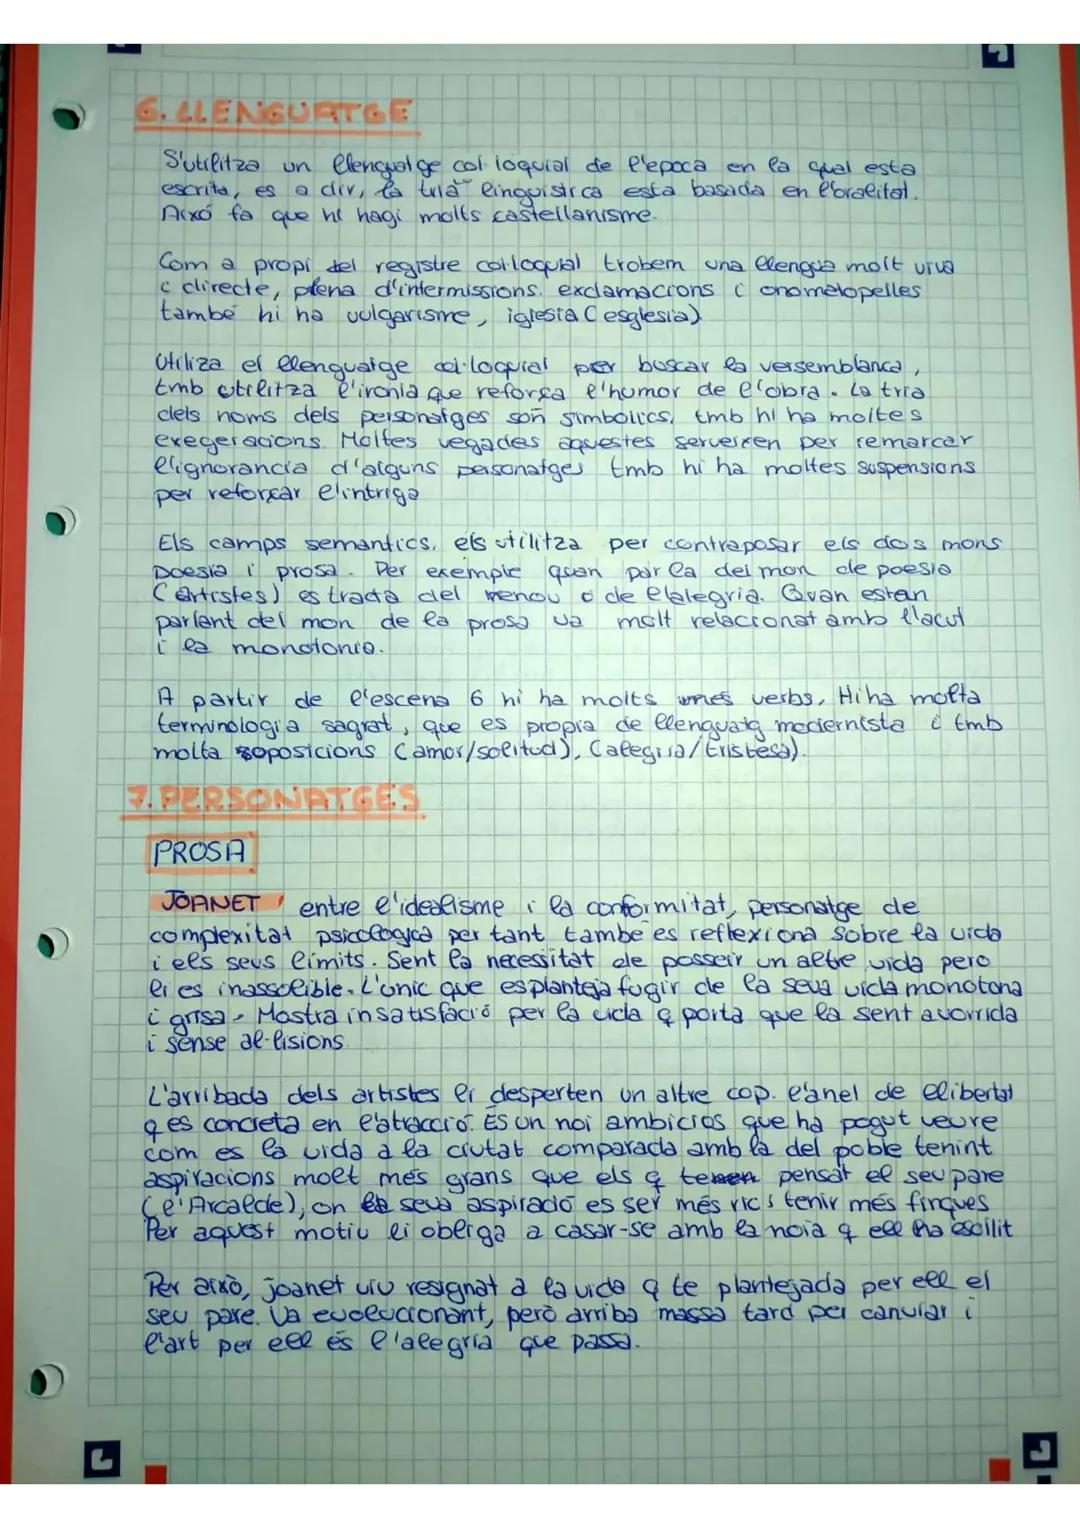 6. LLENGUATGE
S'utilitza un llenguatge col·loquial de l'epoca en la qual esta
escrita, es a dir, la tria lingüistica esta basada en l'oralitat.
Aixó fa que hi hagi molts castellanisme.
Com a propi del registre col·loquial trobem una llengua molt viva
i directe, plena d'intermissions. exclamacions i onomatopelles
també hi ha vulgarisme, iglesia (esglesia)
Utiliza el llenguatge col·loquial per buscar la versemblança,
tmb utilitza l'ironia que reforça l'humor de l'obra. La tria
dels noms dels personatges són simbolics, tmb hi ha moltes
exegeracions. Moltes vegades aquestes serveixen per remarcar
l'ignorancia d'alguns personatges tmb hi ha moltes suspensions
per reforçar l'intriga
Els camps semantics, els utilitza per contraposar els dos mons
poesia i prosa. Per exemple quan parla del mon de poesia
(artistes) es tracta del renou o de l'alegria. Quan estan
parlant del mon de la prosa va molt relacionat amb l'acut
i la monotonia.
A partir de l'escena 6 hi ha molts més verbs, Hi ha molta
terminologia sagrat, que es propia de llenguatg modernista i tmb
molta oposicions (amor/solitud), (alegria/tristesa).
7. PERSONATGES
PROSA
JOANET entre l'idealisme i la conformitat, personatge de
complexitat psicologica per tant també es reflexiona sobre la vida
i els seus limits. Sent la necessitat de posseir un altre vida pero
li es inassolible. L'unic que es planteja fugir de la seva vida monotona
i grisa. Mostra insatisfació per la vida q porta que la sent avorrida
i sense al·lisions
L'arribada dels artistes li desperten un altre cop. l'anel de llibertat
q es concreta en l'atracció. És un noi ambicios que ha pogut veure
com es la vida a la ciutat comparada amb la del poble tenint
aspiracions molt més grans que els q tenen pensat el seu pare
(l'Arcalde), on la seva aspiració es ser més ric i tenir més finques
Per aquest motiu li obliga a casar-se amb la noia q ell ha escollit
Per això, joanet viu resignat a la vida q te plantejada per ell el
seu pare. Va evolucionant, però arriba massa tard per canviar i
l'art per ell és l'alegria que passa.